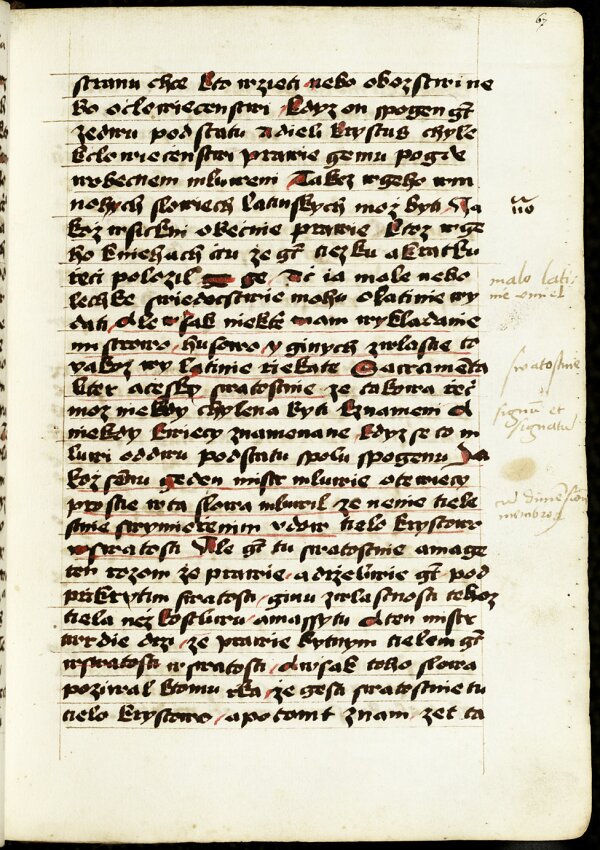 67
stranu chce kto wzieti nebo obozstwi ne
bo oclowiecenstwi kdyz on spogen gt
zedwu podstatu a dieli krystus chyle
kclowiecenstwi prawie gemu pogde
wobecnem mluweni Takez wgeho wm
nohych slowiech latinskych moz byti Ja
koz wsickni obecnie prawie ktoz wge
ho kniehach ctu ze gt tiezku akratku
reci polozil ge Ac ia male nebo
lechke swiedocstwie mohu olatinie wy
dati ale wsak niekte mam wykladanie
mistrowo husowo y ginych zwlastie to
yakoz wy latinie riekate Sacramenta
liter acesky swatostnie ze takowa rec
moz niekdy chylena byti kznameni a
niekdy kwiecy znamenane kdyz se to m
luwi odwu podstatu spolu spogenu Ja
koz semu geden mistr mluwie otewiecy
prostie wta slowa mluwil ze nenie tiele
stnie swymierenim vdow tielo krystowo
wswatosti Ale gt tu swatostnie amage
ten rozom ze prawie adrzeliwie gt pod
prikrytim swatosti ginu zwlastnosti tehoz
tiela nez kostwru amassytu aten mistr
twrdie drzi ze prawie bytnym tielem gt
wswatosti wswatosti awsak toho slowa
poziwal ktomu rka ze gest swatostnie tu
tielo krystowo apotomt znam zet ta
malo lati
swatostnie
signum et
signatum